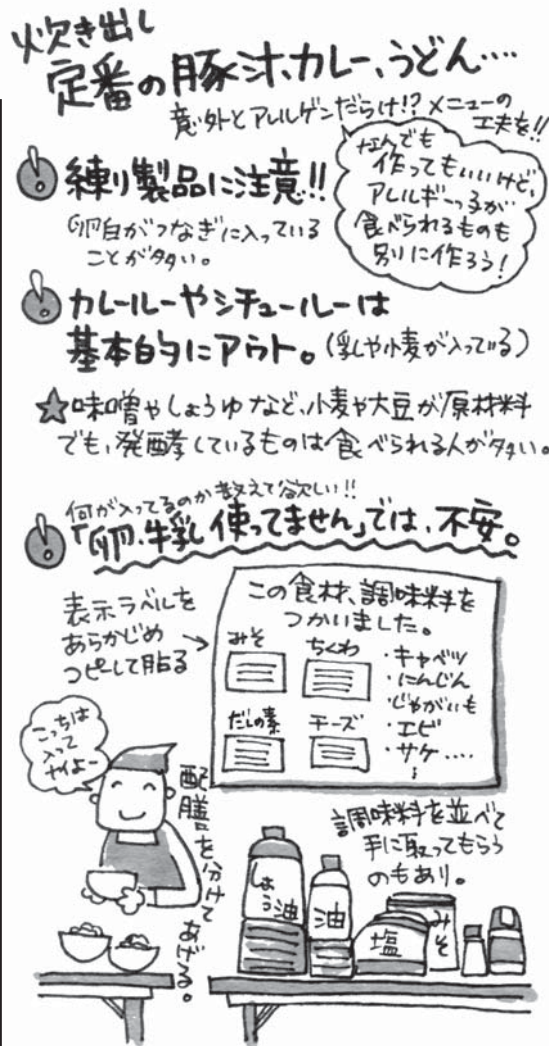 炊き出し
定番の豚汁、カレー、うどん‥‥
意外とアレルゲンだらけ!? メニューの
工夫を!!
なんでも
作ってもいいけど、
アレルギーっ子が
食べられるものも
別に作ろう!
練り製品に注意!!
卵白がつなぎに入っている
ことが多い。
カレールーやシチュールーは
基本的にアウト。(乳や小麦が入っている)
☆味噌やしょうゆなど、小麦や大豆が原材料
でも、発酵しているものは食べられる人が多い。
何が入ってるのか教えて欲しい!!
「卵、牛乳使ってません」では、不安。
表示ラベルを
あらかじめ
コピーして貼る
この食材、調味料を
つかいました。
みそ
ちくわ
だしの素
チーズ
・キャベツ
・にんじん
・じゃがいも
・エビ
・サケ‥‥
こっちは
入って
ナイよー
配膳を分けてあげる。
調味料を並べて
手に取ってもらう
のもあり。
しょう油
油
塩
みそ